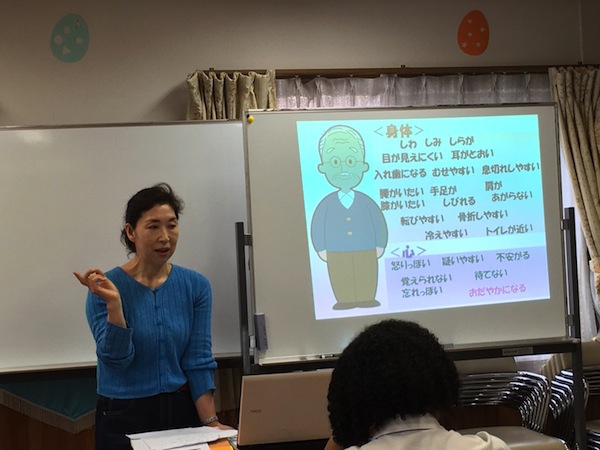 ＜身体＞
しわ しみ しらが
目が見えにくい 耳がとおい
入れ歯になる むせやすい 息切れしやすい
腰がいたい 手足が 肩が
膝がいたい しびれる あがらない
転びやすい 骨折しやすい
冷えやすい トイレが近い
＜心＞
怒りっぽい 疑いやすい 不安がる
覚えられない 待てない
忘れっぽい おだやかになる